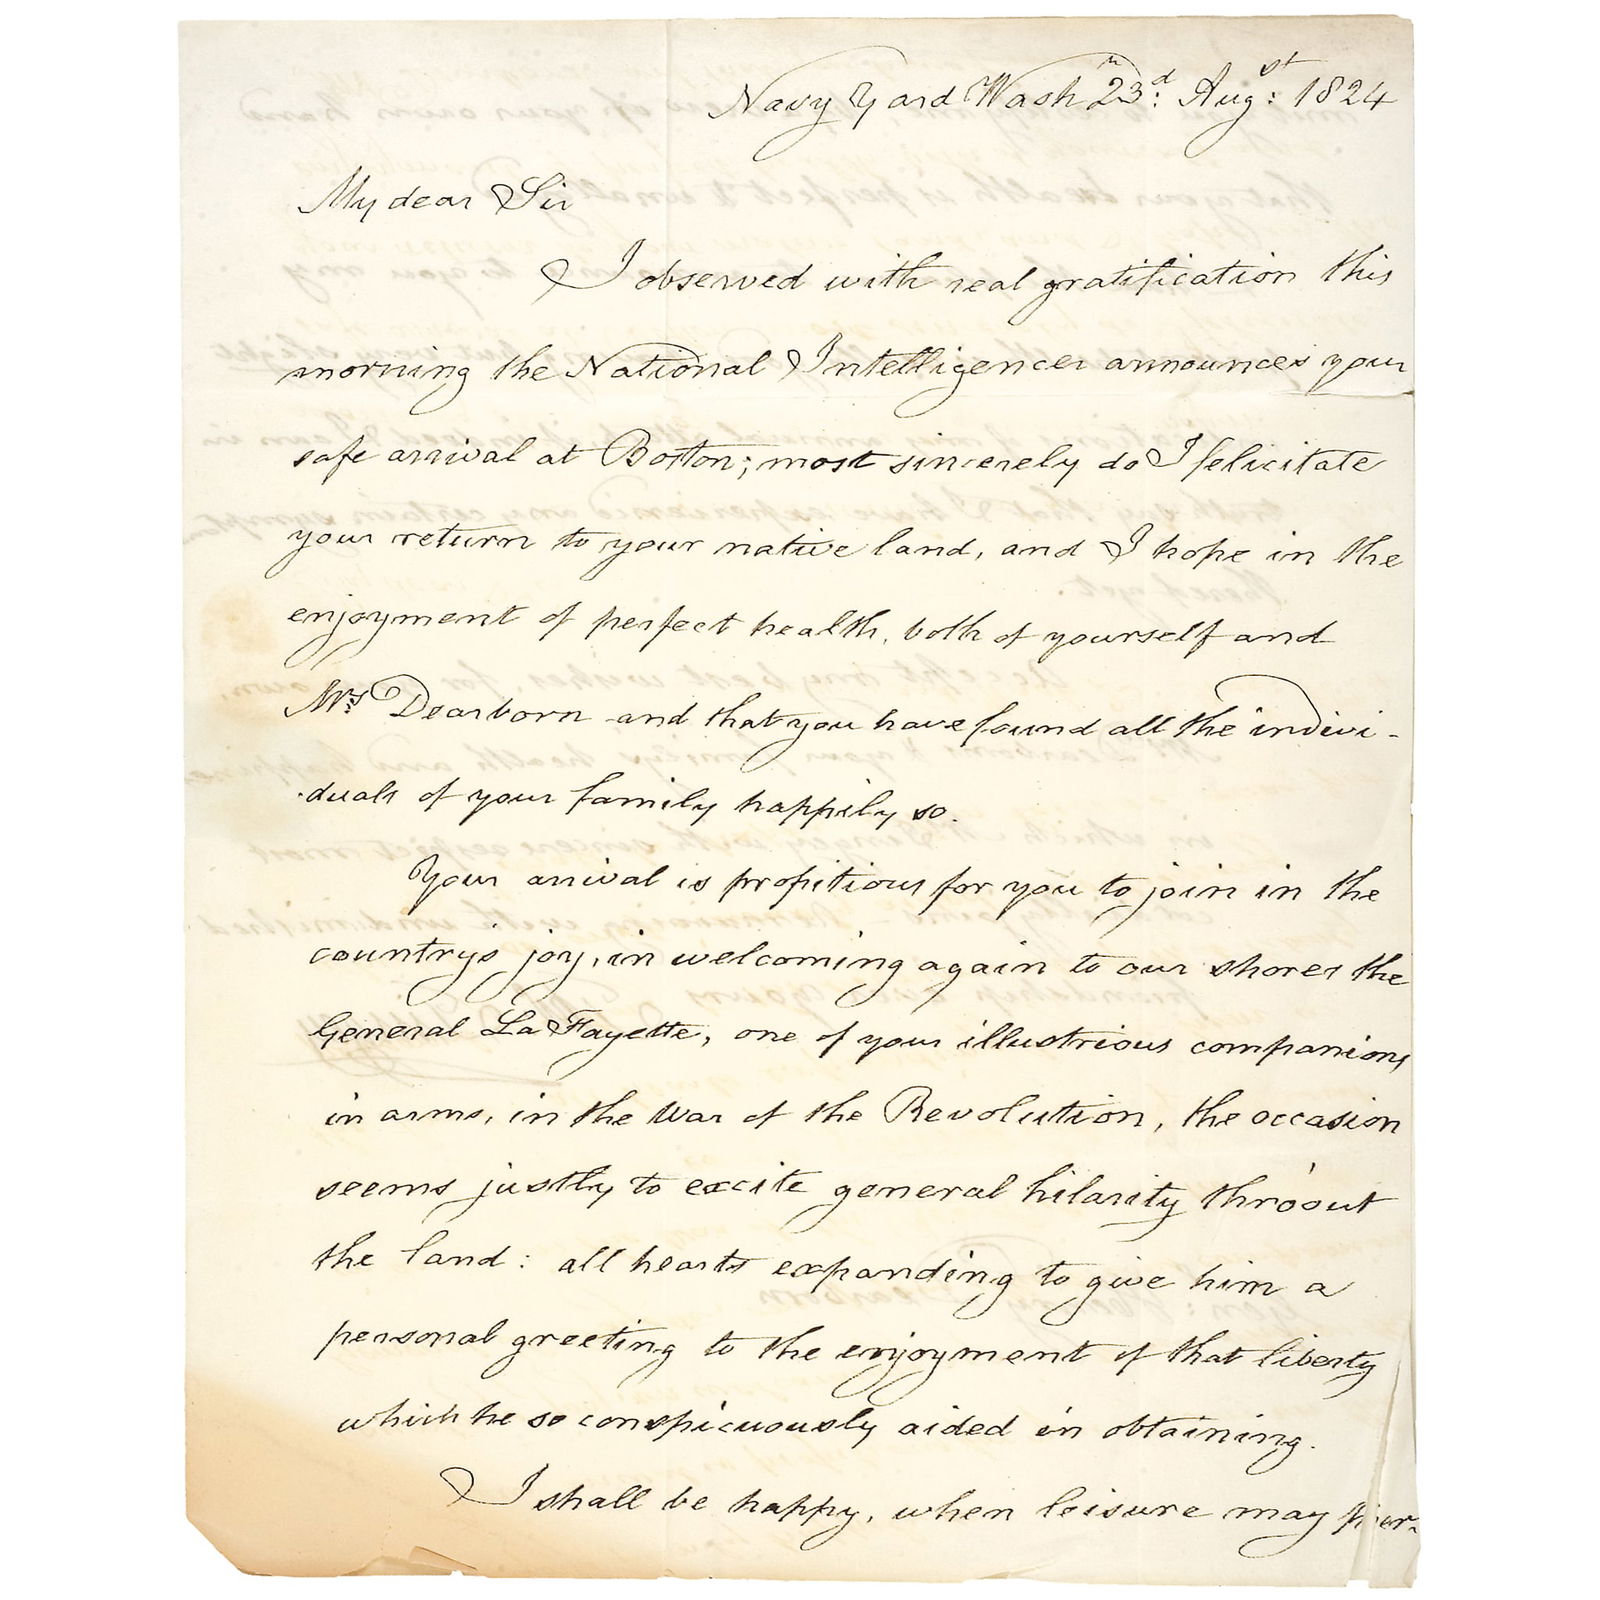 Navy Yard Washn 23d: Augst: 1824
My dear Sir
I observed with real gratification this
morning the National Intelligencer announces your
safe arrival at Boston; most sincerely do I felicitate
your return to your native land, and I hope in the
enjoyment of perfect health, both of yourself and
Mrs Dearborn and that you have found all the indivi-
duals of your family happily so.
Your arrival is propitious for you to join in the
country's joy, in welcoming again to our shores the
General La Fayette, one of your illustrious companions
in arms, in the War of the Revolution, the occasion
seems justly to excite general hilarity thro'out
the land: all hearts expanding to give him a
personal greeting to the enjoyment of that liberty
which he so conspicuously aided in obtaining.
I shall be happy, when leisure may per-